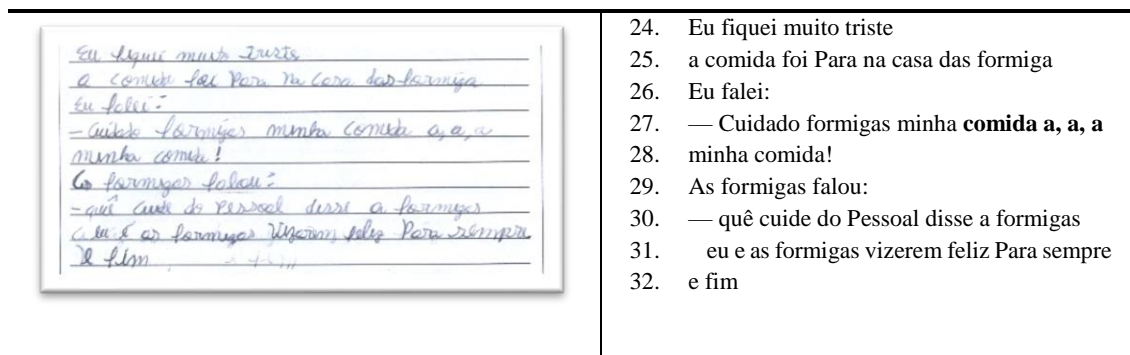 Eu fiquei muito triste
a comida foi Para na casa das formiga
Eu falei:
- Cuidado formigas minha comida a, a, a
minha comida!
As formigas falou:
- quê cuide do Pessoal disse a formigas
eu e as formigas vizerem feliz Para sempre
e fim
24. Eu fiquei muito triste
25. a comida foi Para na casa das formiga
26. Eu falei:
27. — Cuidado formigas minha comida a, a, a
28. minha comida!
29. As formigas falou:
30. — quê cuide do Pessoal disse a formigas
31. eu e as formigas vizerem feliz Para sempre
32. e fim